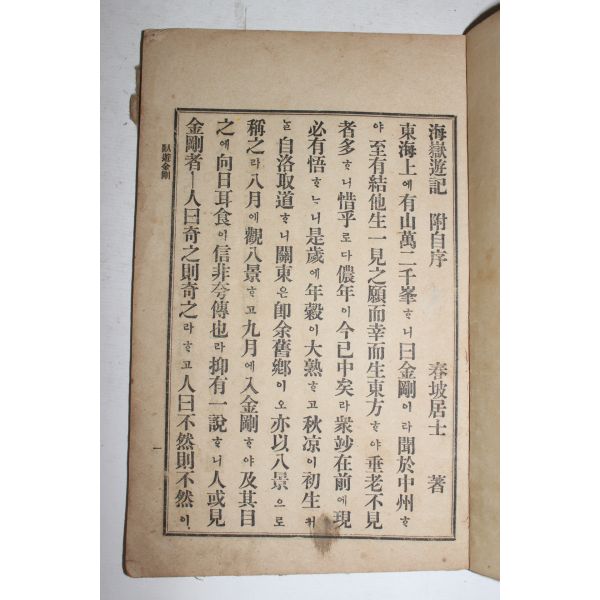 海嶽遊記 附自序 春坡居士 著
東海上에有山萬二千峯ᄒᆞ니曰金剛이라聞於中州ᄒᆞ
야至有結他生一見之願而幸而生東方ᄒᆞ야垂老不見
者多ᄒᆞ니惜乎로다儂年이今已中矣라衆竗在前에現
必有悟ᄒᆞᄂᆞ니是歲에年穀이大熟ᄒᆞ고秋凉이初生커
ᄂᆞᆯ自洛取道ᄒᆞ니關東은卽余舊鄕이오亦以八景으로
稱之라八月에觀八景ᄒᆞ고九月에入金剛ᄒᆞ야及其目
之에向日耳食이信非夸傳也라抑有一說ᄒᆞ니人或見
金剛者ㅣ人曰奇之則奇之라ᄒᆞ고人曰不然則不然이
臥遊金剛
一